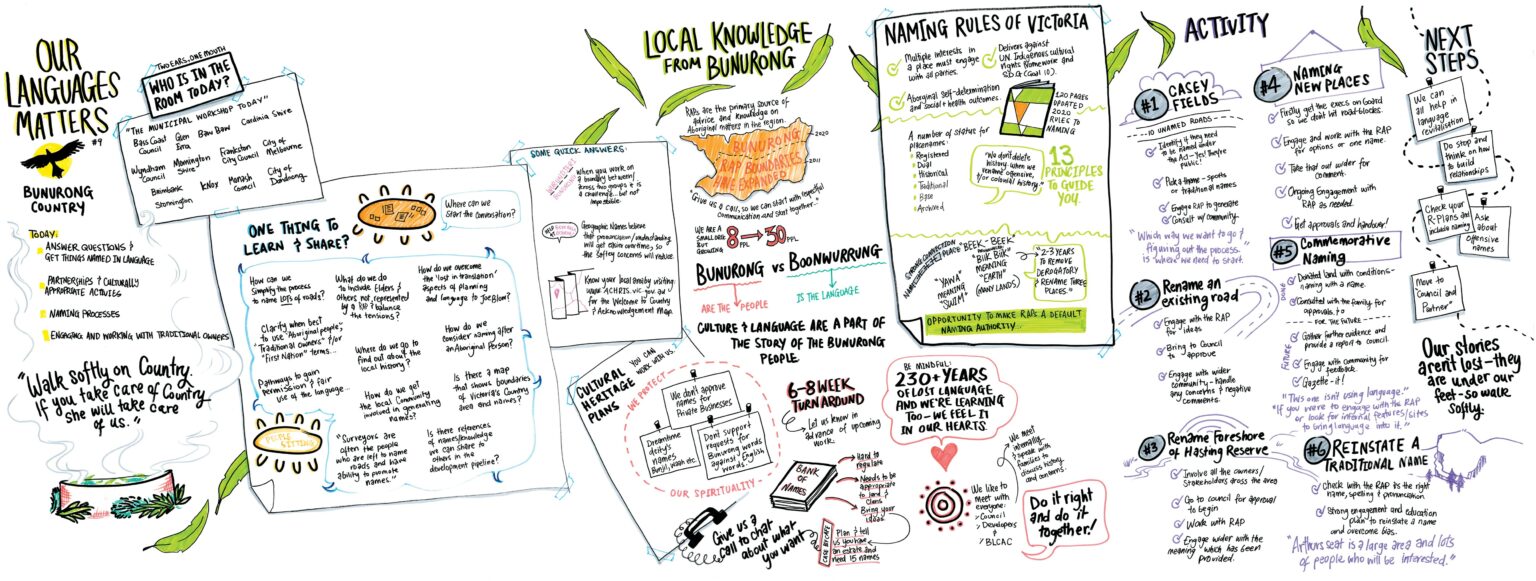 OUR
LANGUAGES
MATTERS
#9
BUNURONG
COUNTRY
TODAY:
ANSWER QUESTIONS &
GET THINGS NAMED IN LANGUAGE
PARTNERSHIPS & CULTURALLY
APPROPRIATE ACTIVIES
NAMING PROCESSES
ENGAGING AND WORKING WITH TRADITIONAL OWNERS
"Walk softly on Country.
If you take care of Country
she will take care
of us."
TWO EARS, ONE MOUTH
WHO IS IN THE
ROOM TODAY?
"THE MUNICIPAL WORKSHOP TODAY"
Bass Coast
Council
Glen
Eira
Baw Baw
Cardinia Shire
Wyndham
Council
Mornington
Shire
Frankston
City Council
City of
Melbourne
Brimbank
Knox
Monash
Council
City of
Dandenong
Stonnington
ONE THING TO
LEARN & SHARE?
Where can we
Start the conversation?
How can we
Simplify the process
to name LOTS of roads?
What do we do
to include Elders &
Others not represented
by a RAP & balance
the tensions?
How do we overcome
the 'lost in translation'
aspects of Planning
and language to Joe Blow?
Clarify when best
to use "Aboriginal people",
"Traditional owners" &/or
"First Nation" terms...
Where do we go to
find out about the
local history?
How do we
consider naming after
an Aboriginal Person?
Pathways to gain
Permission & fair
use of the language...
How do we get
the local Community
involved in generating
names?
Is there a map
that shows boundaries
of Victoria's Country
area and names?
PEOPLE SITTING
"Surveyors are
often the people
who are left to name
roads and have
ability to promote
names."
Is there references
of names/knowledge
we can share to
others in the
development pipeline?
SOME QUICK ANSWERS:
When you work on
a boundary between/
across two groups it is
a challenge... but not
impossible.
Geographic Names believe
that pronunciation/understanding
will get easier overtime, so
the safety concerns will reduce.
Know your local area by visiting
www.ACHRIS.vic.gov.au
for the Welcome to Country
& Acknowledgement Map.
CULTURAL
HERITAGE
PLANS
YOU CAN
WORK WITH US.
WE PROTECT
We don't approve
names for
Private Businesses
Dreamtime
deity's
names
Bunjil, Waah etc
Dont support
requests for
Bunurong words
against English
words.
OUR SPIRITUALITY
Give us a
call to chat
about what
you want
LOCAL KNOWLEDGE
FROM BUNURONG
RAPs are the primary source of
advice and knowledge on
Aboriginal matters in the region.
BUNURONG
RAP BOUNDARIES
HAVE EXPANDED
2020
2011
"Give us a call, so we can start with respectful
communication and start together."
WE ARE A
SMALL ORG
BUT
GROWING
8 PPL → 30 PPL
BUNURONG VS BOONWURRUNG
ARE THE PEOPLE
IS THE LANGUAGE
CULTURE & LANGUAGE ARE A PART OF
THE STORY OF THE BUNURONG
PEOPLE.
6-8 WEEK
TURN AROUND
Let us know in
advance of upcoming
work.
BANK
OF
NAMES
Hard to
regulate
Needs to be
appropriate
to land &
Clans
Bring your
ideas
CASE BY CASE
Plan & tell
us you have
an estate and
need 15 names
BE MINDFUL:
230+ YEARS
OF LOST LANGUAGE
AND WE'RE LEARNING
TOO - WE FEEL IT
IN OUR HEARTS.
We meet
internally,
& speak with
families to
discuss history,
and concerns.
We like to
Meet with
everyone:
Council
Developers
& BLCAC
Do it right
and do it
together!
NAMING RULES OF VICTORIA
Multiple interests in
a place must engage
with all parties.
Aboriginal Self-determination
and social + health outcomes.
Delivers against
UN Indigenous cultural
rights framework and
S.D.G (Goal 10).
120 PAGES
UPDATED
2020
RULES TO
NAMING
A number of status for
placenames:
Registered
Dual
Historical
Traditional
Base
Archived
"We don't delete
history when we
rename offensive,
&/or colonial history"
13
PRINCIPLES
TO GUIDE
YOU.
"YAWA"
MEANING
"SWIM"
"BEEK-BEEK"
"BIIK BIIK"
MEANING
"EARTH"
(MANY LANDS)
"2-3 YEARS
TO REMOVE
DEROGATORY
& RENAME THREE
PLACES."
OPPORTUNITY TO MAKE RAPs A DEFAULT
NAMING AUTHORITY...
ACTIVITY
#1 CASEY
FIELDS
10 UNAMED ROADS
Identify if they need
to be named under
the Act - Yes! They're
public!
Pick a theme - sports
or traditional names
Engage RAP to generate
Consult w/community.
"Which way we want to go &
figuring out the process
is where we need to start.
#2 Rename an
existing road
Engage with the RAP
for ideas
Bring to Council
to approve
Engage with wider
community - handle
any concerns & negative
comments.
#3 Rename Foreshore
of Hasting Reserve
Involve all the owners/
Stakeholders aross the area
Go to council for approval
to begin
Work with RAP
Engage wider with the
meaning which has been
provided.
#4 NAMING
NEW PLACES
Firstly get the execs on board
so we dont hit road-blocks.
Engage and work with the RAP
for options or one name.
Take that out wider for
comment.
Ongoing Engagement with
RAP as needed.
Get approvals and handover!
#5 Commemorative
Naming
DONE
Donated land with conditions-
naming with a name.
Consulted with the family for
approvals, &
FOR THE FUTURE
FUTURE
Gather further evidence and
provide a report to council.
Engage with community for
feedback.
Gazette-it!
"This one isn't using language."
"If you were to engage with the RAP
or look for informal features/sites
to bring language into it."
#6 REINSTATE A
TRADITIONAL NAME
Check with the RAP its the right
name, spelling & pronunciation.
Strong engagement and education
plan to reinstate a name
and overcome bias.
"Arthurs seat is a large area and lots
of people who will be interested."
NEXT
STEPS
We can
all help in
language
revitalisation
Do stop and
think on how
to build
relationships
Check your
R-Plans and
include naming
Ask
about
Offensive
names
Move to
"Council and
Partner"
Our stories
arent lost - they
are under our
feet - so walk
softly.